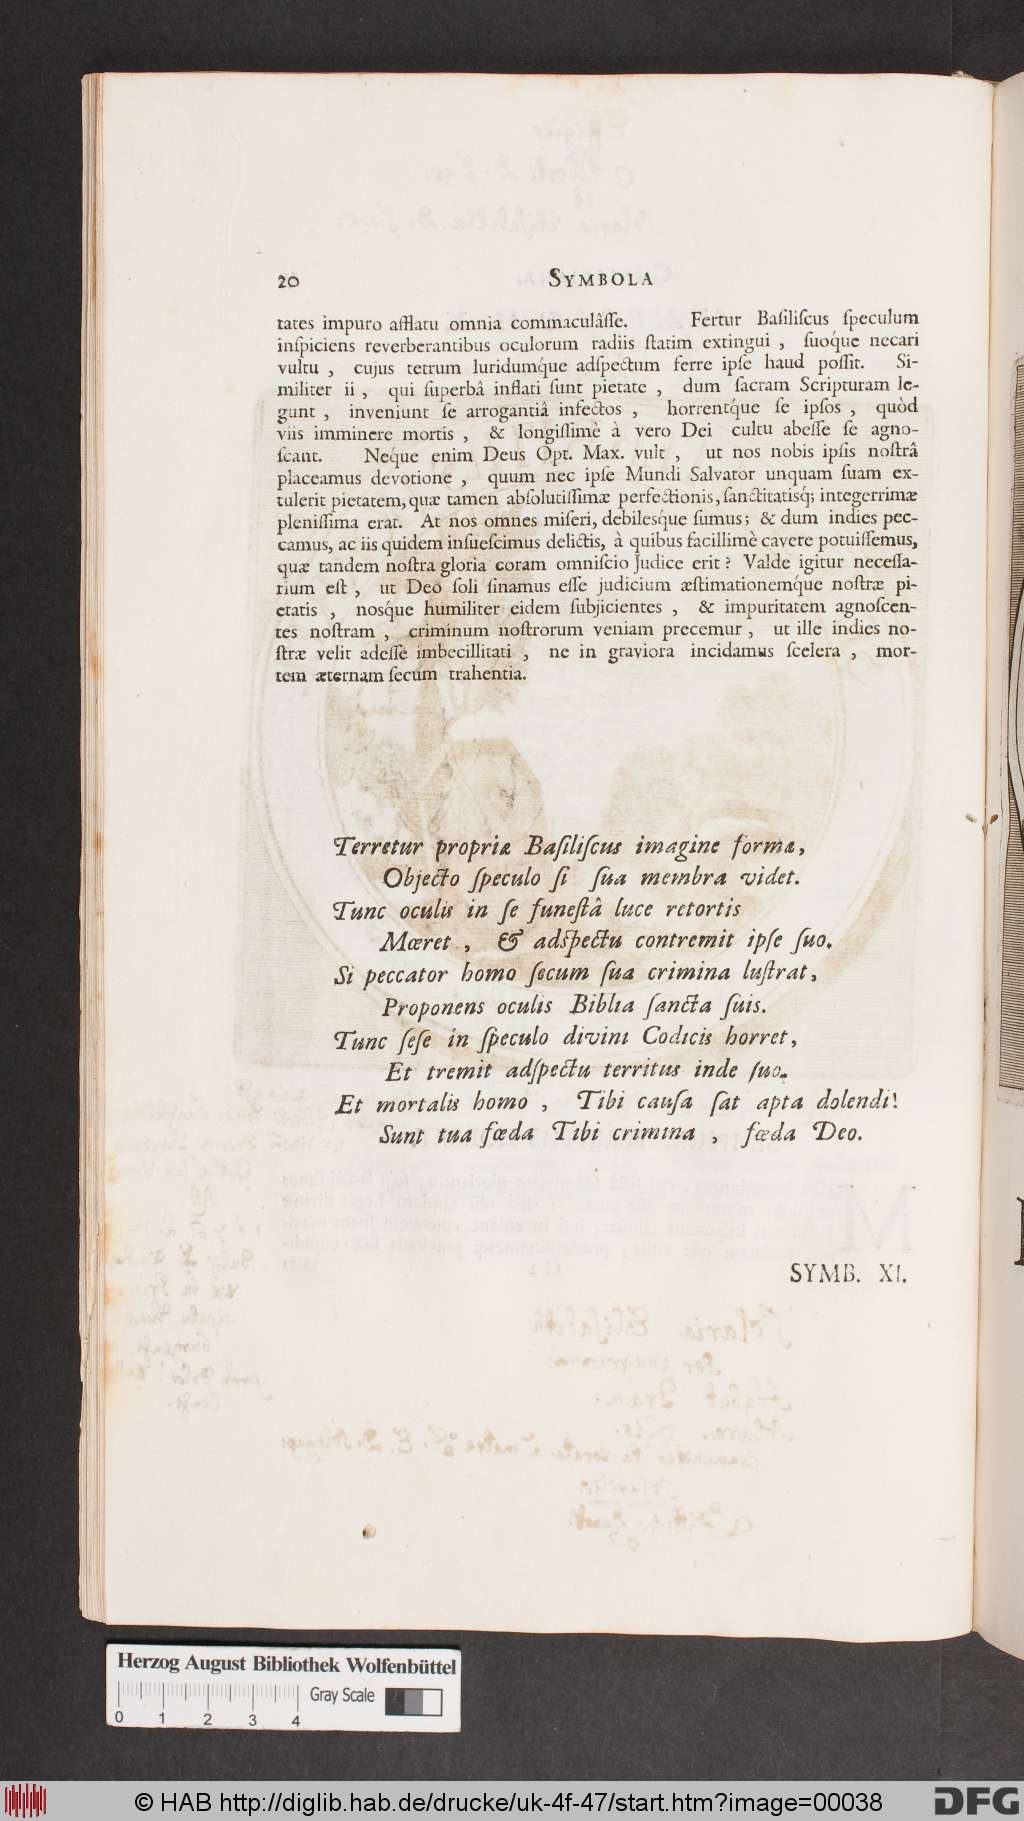 20 SYMBOLA
tates impuro afflatu omnia commaculâſſe. Fertur Baſiliſcus ſpeculum
inſpiciens reverberantibus oculorum radiis ſtatim extingui , ſuoq́ue necari
vultu , cujus tetrum luridumq́ue adſpectum ferre ipſe haud poſſit. Si-
militer ii , qui ſuperbâ inflati ſunt pietate , dum ſacram Scripturam le-
gunt , inveniunt ſe arrogantiâ infectos , horrentq́ue ſe ipſos , quòd
viis imminere mortis , & longiſſimè à vero Dei cultu abeſſe ſe agno-
ſcant. Neq́ue enim Deus Opt. Max. vult , ut nos nobis ipſis noſtrâ
placeamus devotione , quum nec ipſe Mundi Salvator unquam ſuam ex-
tulerit pietatem, quæ tamen abſolutiſſimæ perfectionis, ſanctitatisq́; integerrimæ
pleniſſima erat. At nos omnes miſeri, debilesq́ue ſumus; & dum indies pec-
camus, ac iis quidem inſueſcimus delictis, à quibus facillimè cavere potuiſſemus,
quæ tandem noſtra gloria coram omniſcio Judice erit? Valde igitur neceſſa-
rium eſt , ut Deo ſoli ſinamus eſſe judicium æſtimationemq́ue noſtræ pi-
etatis , nosq́ue humiliter eidem ſubjicientes , & impuritatem agnoſcen-
tes noſtram , criminum noſtrorum veniam precemur , ut ille indies no-
ſtræ velit adeſſe imbecillitati , ne in graviora incidamus ſcelera , mor-
tem æternam ſecum trahentia.
Terretur propriæ Baſiliſcus imagine formæ,
Objecto ſpeculo ſi ſua membra videt.
Tunc oculis in ſe funeſtâ luce retortis
Mœret , & adſpectu contremit ipſe ſuo.
Si peccator homo ſecum ſua crimina luſtrat,
Proponens oculis Biblia ſancta ſuis.
Tunc ſeſe in ſpeculo divini Codicis horret,
Et tremit adſpectu territus inde ſuo.
Et mortalis homo , Tibi cauſa ſat apta dolendi!
Sunt tua fœda Tibi crimina , fœda Deo.
SYMB. XI.
Herzog August Bibliothek Wolfenbüttel
Gray Scale
0 1 2 3 4
© HAB http://diglib.hab.de/drucke/uk-4f-47/start.htm?image=00038
DFG